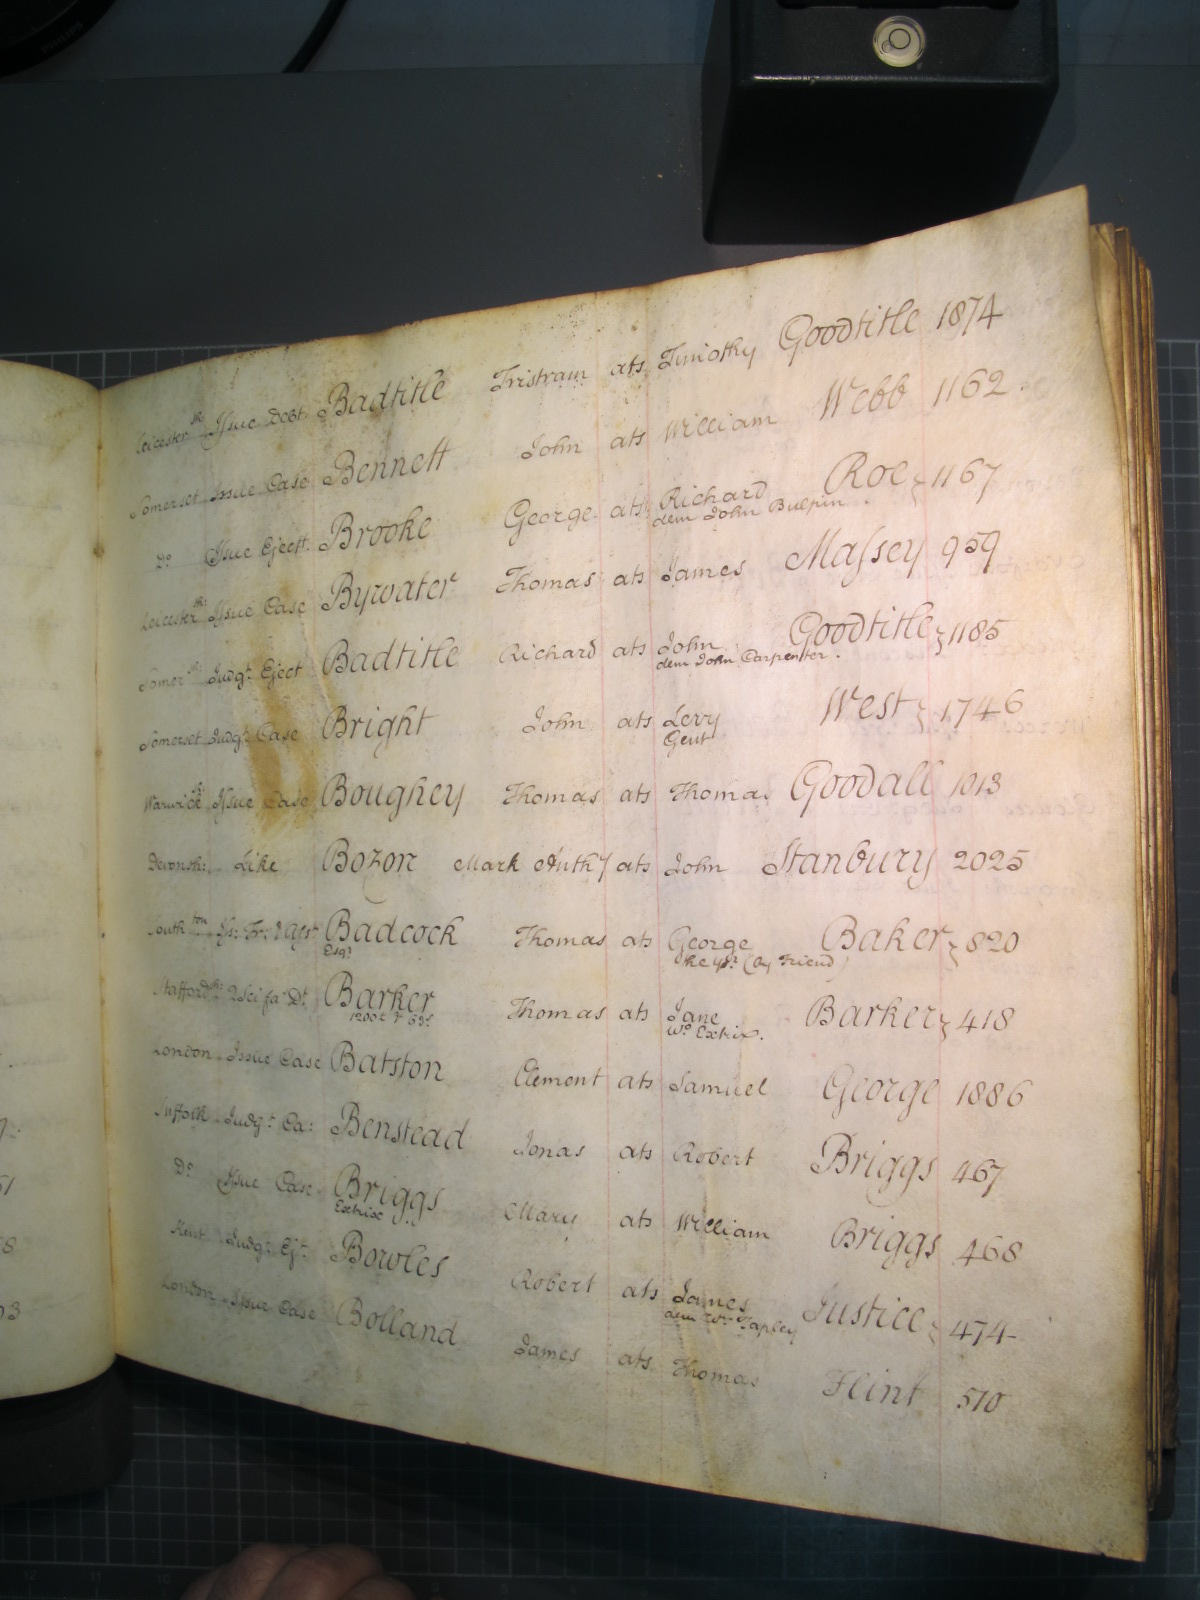 Leicester sh: Issue Debt Badtitle Tristram ats Timothy Goodtitle 1874
Somerset Issue Case Bennett John ats William Webb 1162
Do Issue Ejectt. Brooke George ats Richard Roe } 1167
dem John Bulpin
Leicester sh: Issue Case Bywater Thomas ats James Massey 959
Somer sh: Judgt. Eject Badtitle Richard ats John Goodtitle } 1185
dem John Carpenter.
Somerset Judgt. Case Bright John ats Levy West } 1746
Gent
Warwick Issue Case Boughey Thomas ats Thomas Goodall 1013
Devonsh: Like Bozon Mark Anthy ats John Stanbury 2025
South ton Badcock Thomas ats George Baker } 820
Esqr. the yr. (by Friend)
Staffordsh: 2 Sci fa Dt. Barker Thomas ats Jane Barker } 418
1200£ & 63s wo. Extrix.
London Issue Case Batston Clement ats Samuel George 1886
Suffolk Judgt. Ca: Benstead Jonas ats Robert Briggs 467
Do Issue Case Briggs Mary ats William Briggs 468
Extrix
Kent Judgt. Ejt. Bowles Robert ats James Justice } 474
dem Wm. Tapley
London Issue Case Bolland James ats Thomas Flint 510